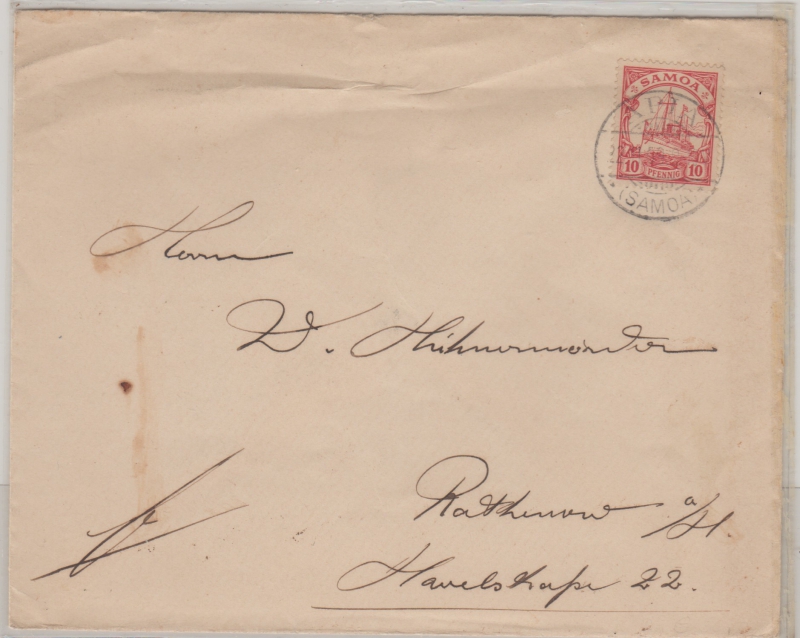 SAMOA
10 PFENNIG 10
(SAMOA)
Herrn
W. Hühnermörder
Rathenow a/H
Havelstraße 22.